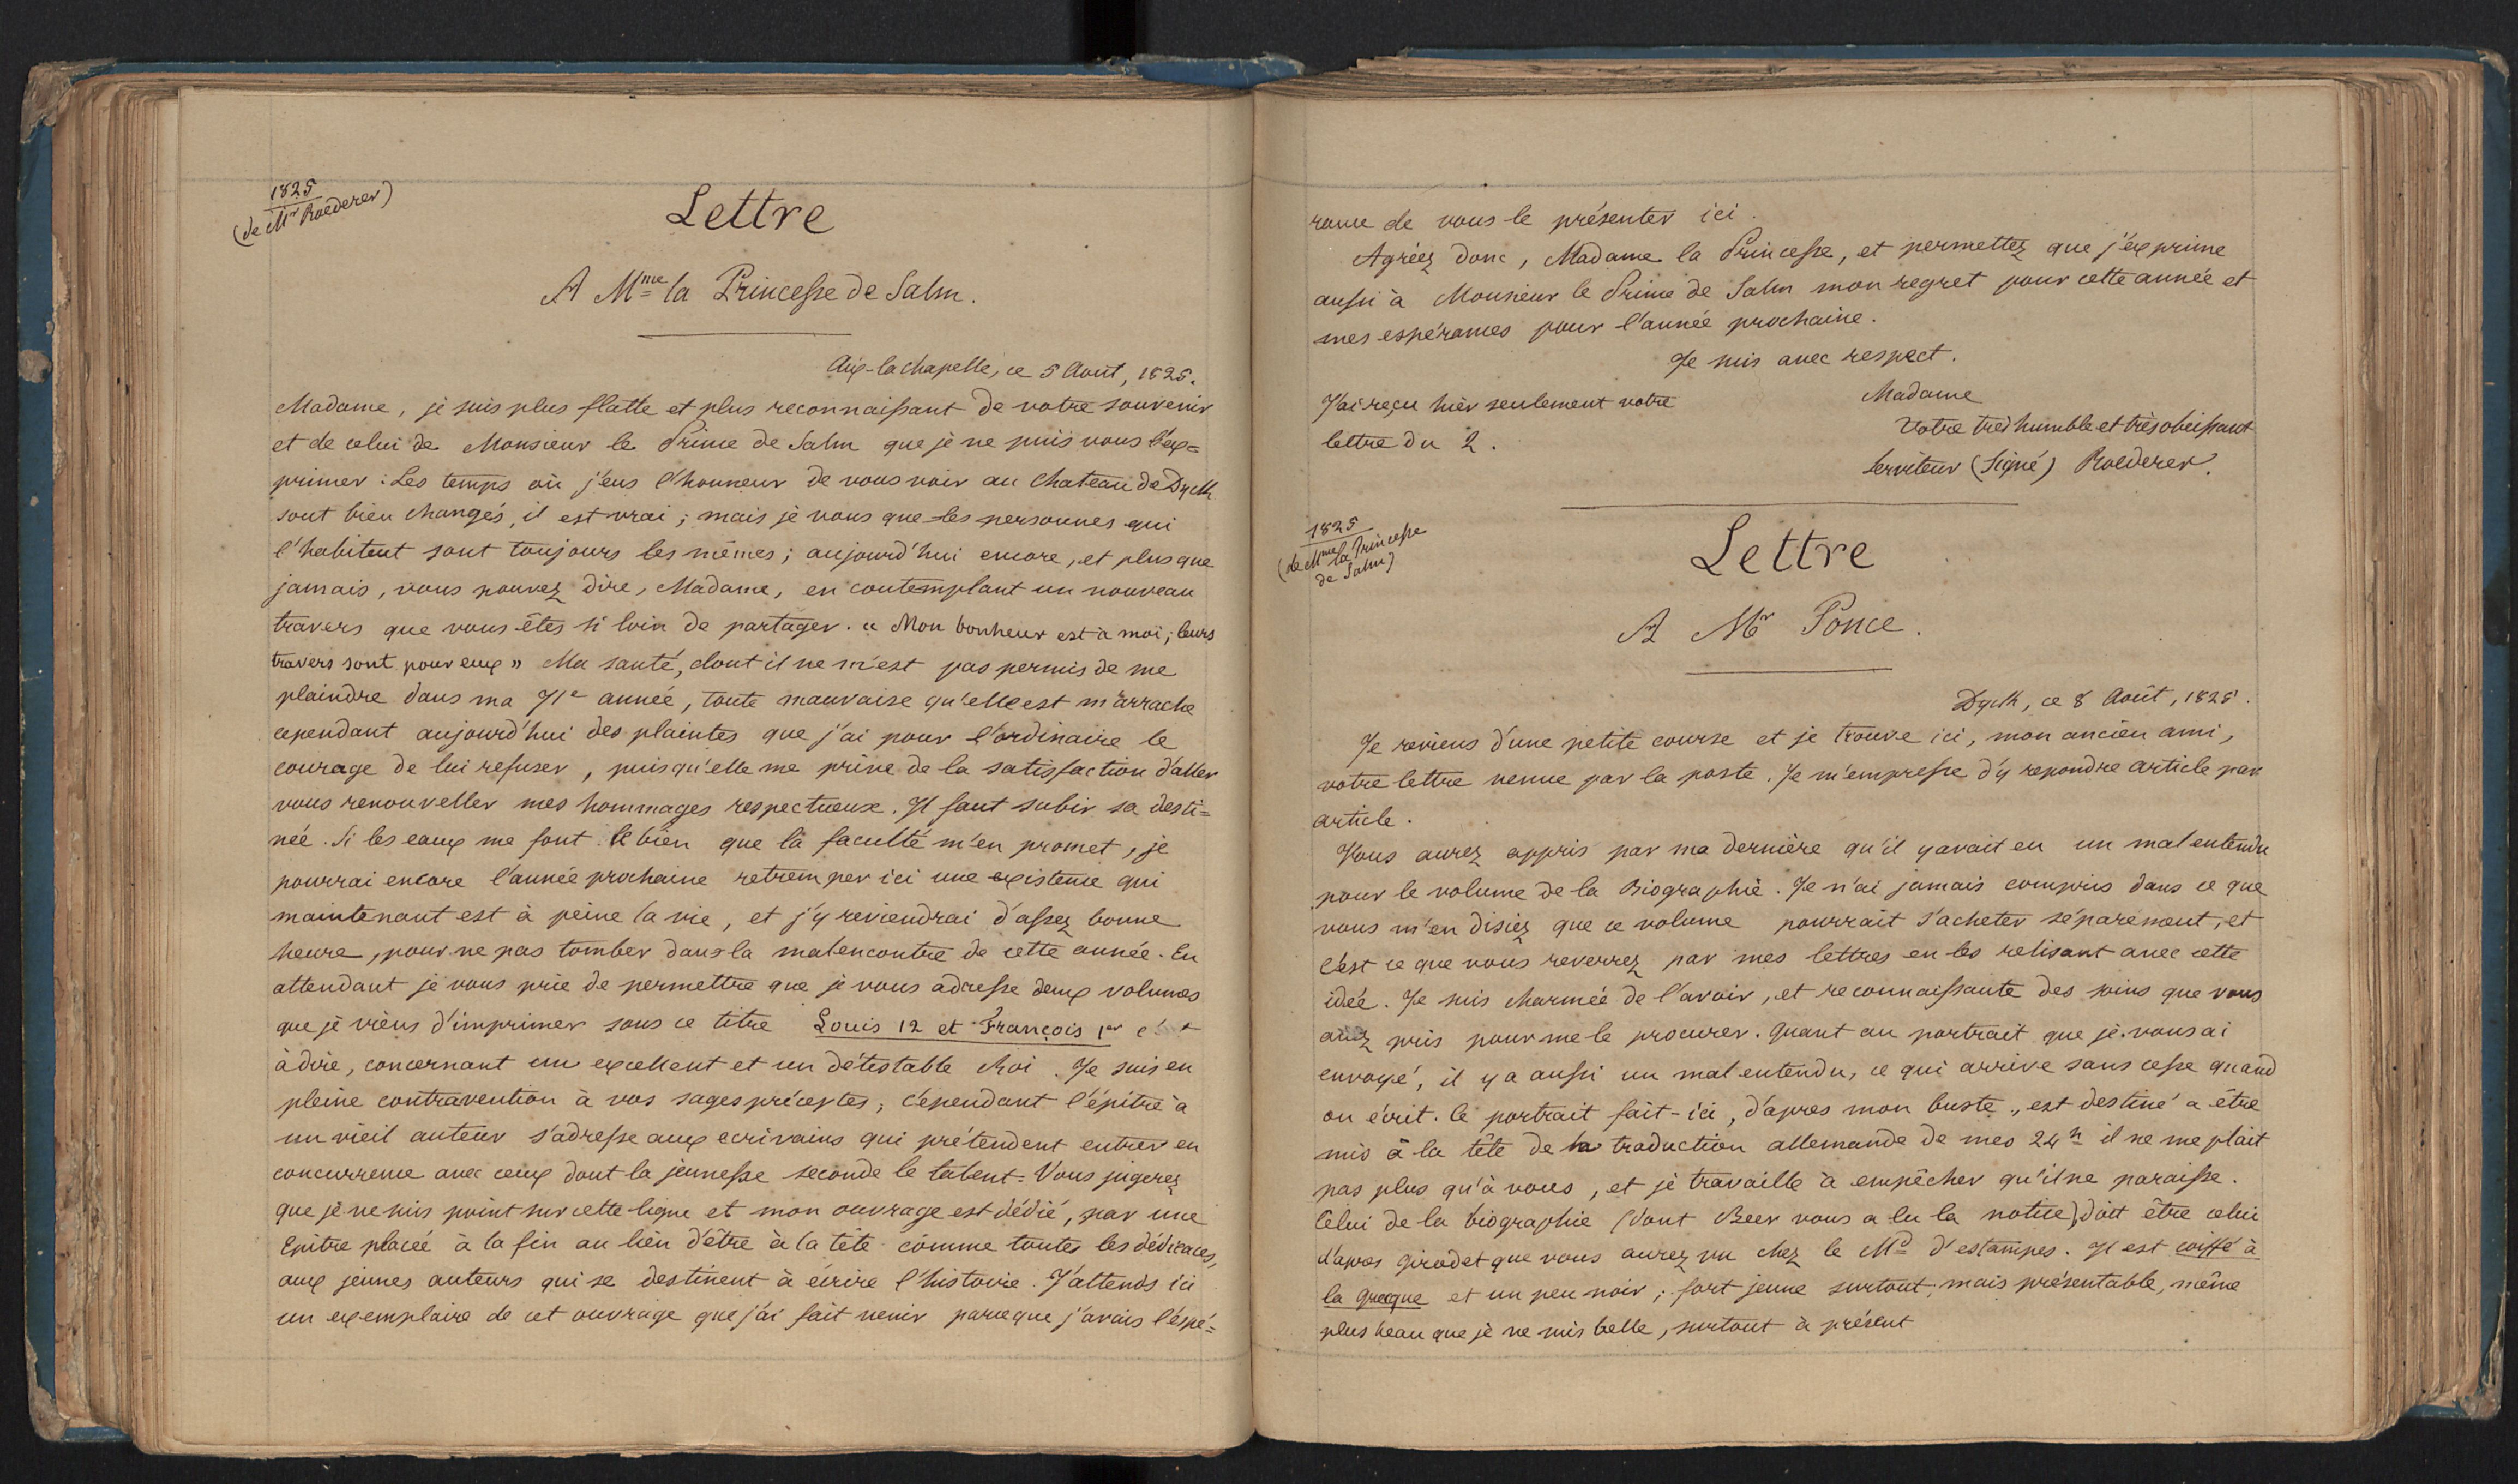 1825
(de Mr Roederer)
Lettre
A Mme la Princesse de Salm.
Aix-la chapelle, ce 5 Août, 1825.
Madame, je suis plus flatté et plus reconnaissant de votre souvenir
et de celui de Monsieur le Prince de Salm que je ne puis vous l'ex=
primer : Les temps où j'eus l'honneur de vous voir au Chateau de Dyck
sont bien changés, il est vrai ; mais je vous que les personnes qui
l'habitent sont toujours les mêmes ; aujourd'hui encore, et plus que
jamais, vous pouvez dire, Madame, en contemplant un nouveau
travers que vous êtes si loin de partager. « Mon bonheur est à moi ; leurs
travers sont pour eux » Ma santé, dont il ne m'est pas permis de me
plaindre dans ma 71e année, toute mauvaise qu'elle est m'arrache
cependant aujourd'hui des plaintes que j'ai pour l'ordinaire le
courage de lui refuser, puisqu'elle me prive de la satisfaction d'aller
vous renouveller mes hommages respectueux. Il faut subir sa desti=
née. Si les eaux me font le bien que la faculté m'en promet, je
pourrai encore l'année prochaine retremper ici une existence qui
maintenant est à peine la vie, et j'y reviendrai d'assez bonne
heure, pour ne pas tomber dans la malencontre de cette année. En
attendant je vous prie de permettre que je vous adresse deux volumes
que je viens d'imprimer sous ce titre Louis 12 et François 1er
à dire, concernant un excellent et un détestable Roi. Je suis en
pleine contravention à vos sages préceptes ; cependant l'épitre à
un vieil auteur s'adresse aux ecrivains qui prétendent entrer en
concurrence avec ceux dont la jeunesse seconde le talent = Vous jugerez
que je ne suis point sur cette ligne et mon ouvrage est dédié, par une
Epitre placée à la fin au lieu d'être à la tête comme toutes les dédicaces,
aux jeunes auteurs qui se destinent à écrire l'histoire. J'attends ici
un exemplaire de cet ouvrage que j'ai fait venir parceque j'avais l'espé=
rance de vous le présenter ici.
Agréez donc, Madame la Princesse, et permettez que j'exprime
aussi à Monsieur le Prince de Salm mon regret pour cette année et
mes espérances pour l'année prochaine.
Je suis avec respect.
Madame
J'ai reçu hier seulement votre
Votre très humble et très obeissant
lettre du 2.
Serviteur (Signé) Roederer.
1825
(de Mme la Princesse
de Salm)
Lettre
A Mr Ponce.
Dyck, ce 8 Août, 1825.
Je reviens d'une petite course et je trouve ici, mon ancien ami,
votre lettre venue par la poste. Je m'empresse d'y repondre article par
article.
Vous aurez appris par ma dernière qu'il y avait eu un mal entendu
pour le volume de la Biographie. Je n'ai jamais compris dans ce que
vous m'en disiez que ce volume pourrait s'acheter séparement, et
c'est ce que vous reverrez par mes lettres en les relisant avec cette
idée. Je suis charmée de l'avoir, et reconnaissante des soins que vous
avez pris pour me le procurer. Quant au portrait que je vous ai
envoyé, il y a aussi un mal entendu, ce qui arrive sans cesse quand
on écrit. Ce portrait fait-ici, d'apres mon buste, est destiné a être
mis à la tête de la traduction allemande de mes 24h il ne me plait
pas plus qu'à vous, et je travaille à empêcher qu'il ne paraisse.
Celui de la biographie (dont Beer vous a lu la notice), doit être celui
d'apres girodet que vous aurez vu chez le Md d'estampes. Il est coiffé à
la grecque et un peu noir ; fort jeune surtout, mais présentable, même
plus beau que je ne suis belle, surtout à présent